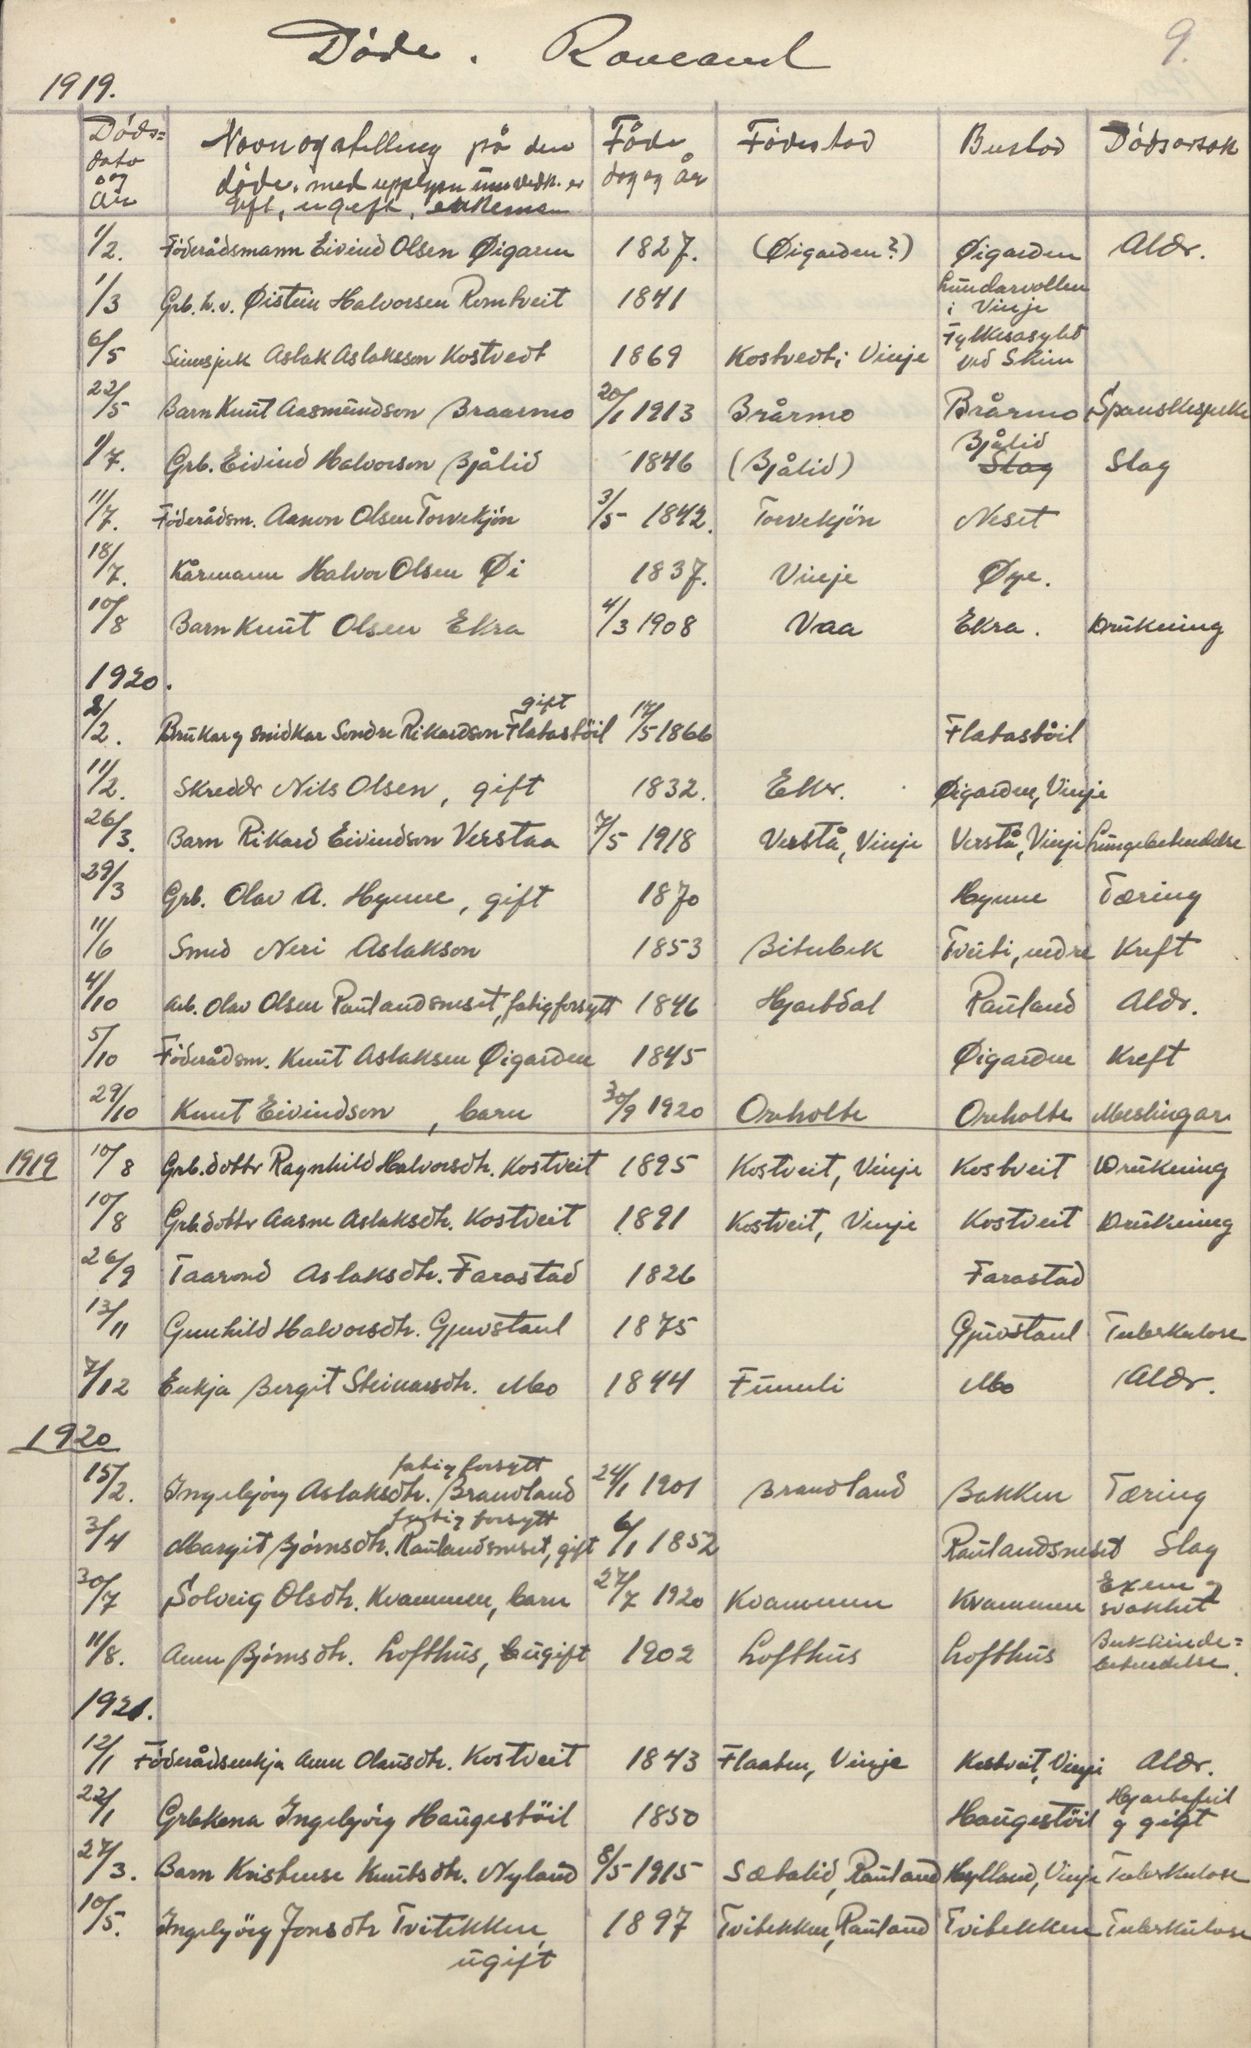 Døde. Rauland
9.
1919.
Døds= dato og år | Navn og stilling på den døde, med upplysn um vedk. er gift, ugift, enkeman | Føde dag og år | Fødestad | Bustad | Dødsorsak
1/2. Föderådsmann Eivind Olsen Øigarden 1827. (Øigarden?) Øigarden Aldr.
1/3 Grb. h.v. Øistein Halvorsen Romtveit 1841 Lundarvollen i Vinje
6/5 Sinnsjuk Aslak Aslaksson Kostvedt 1869 Kostvedt i Vinje Fylkesasylet ved Skien
22/5 Barn Knut Aasmundson Braarmo 20/1 1913 Brårmo Brårmo Spanskesjuke
1/7. Grb. Eivind Halvorson Bjålid 1846 (Bjålid) Bjålid Slag
11/7. Föderådsm. Aanon Olsen Torvekjön 3/5 1842. Torvekjön Neset
18/7. Kårmann Halvor Olsen Øi 1837. Vinje Øye.
10/8 Barn Knut Olsen Ekra 4/3 1908 Vaa Ekra. Drukning
1920.
2/2. Brukar og snidkar Sondre Rikardson Flatastöil gift 17/5 1866 Flatastöil
11/2. Skreddr Nils Olsen, gift 1832. Ekr. Øigarden, Vinje
26/3. Barn Rikard Eivindson Verstaa 7/5 1918 Verstå, Vinje Verstå, Vinje Lungebetendelse
29/3 Grb. Olav A. Hynne, gift 1870 Hynne Tæring
11/6 Smed Neri Aslakson 1853 Bitubek Tveiti, nedre Kreft
4/10 Arb. Olav Olsen Raulandsneset, fatigforsytt 1846 Hjartdal Rauland Aldr.
5/10 Föderådsm. Knut Aslaksen Øigarden 1845 Øigarden Kreft
29/10 Knut Eivindson, barn 30/9 1920 Oreholte Oreholte Meslingar.
1919 10/8 Grb.dottr Ragnhild Halvorsdtr. Kostveit 1895 Kostveit, Vinje Kostveit Drukning
10/8 Grb.dottr Aasne Aslaksdtr. Kostveit 1891 Kostveit, Vinje Kostveit Drukning
26/9 Taarond Aslaksdtr. Farastad 1826 Farastad
13/11 Gunhild Halvorsdtr. Gjuvstaul 1875 Gjuvstaul Tuberkulose
7/12 Enkja Bergit Steinarsdtr. Mo 1844 Funnli Mo Aldr.
1920
15/2. Ingebjörg Aslaksdtr. Brandland fatigforsytt 24/1 1901 Brandland Bakken Tæring
3/4 Margit Bjørnsdtr. Raulandsneset, gift fatigforsytt 6/1 1852 Raulandsneset Slag
30/7 Solveig Olsdtr. Kvammen, barn 27/7 1920 Kvammen Kvammen Exem og svakhet
11/8. Anne Bjørnsdtr. Lofthus, ugift 1902 Lofthus Lofthus Bukhinde= betendelse.
1921.
12/1 Föderådsenkja Anne Olavsdtr. Kostveit 1843 Flaaten, Vinje Kostveit, Vinje Aldr.
22/1 Grbkona Ingebjörg Haugestöil 1850 Haugestöil Hjartefeil og gigt
27/3. Barn Kristense Knutsdtr. Nyland 8/5 1915 Sætalid, Rauland Nylland, Vinje Tuberkulose
10/5. Ingebjörg Jonsdtr Tvitekken, ugift 1897 Tvitekken, Rauland Tvitekken Tuberkulose